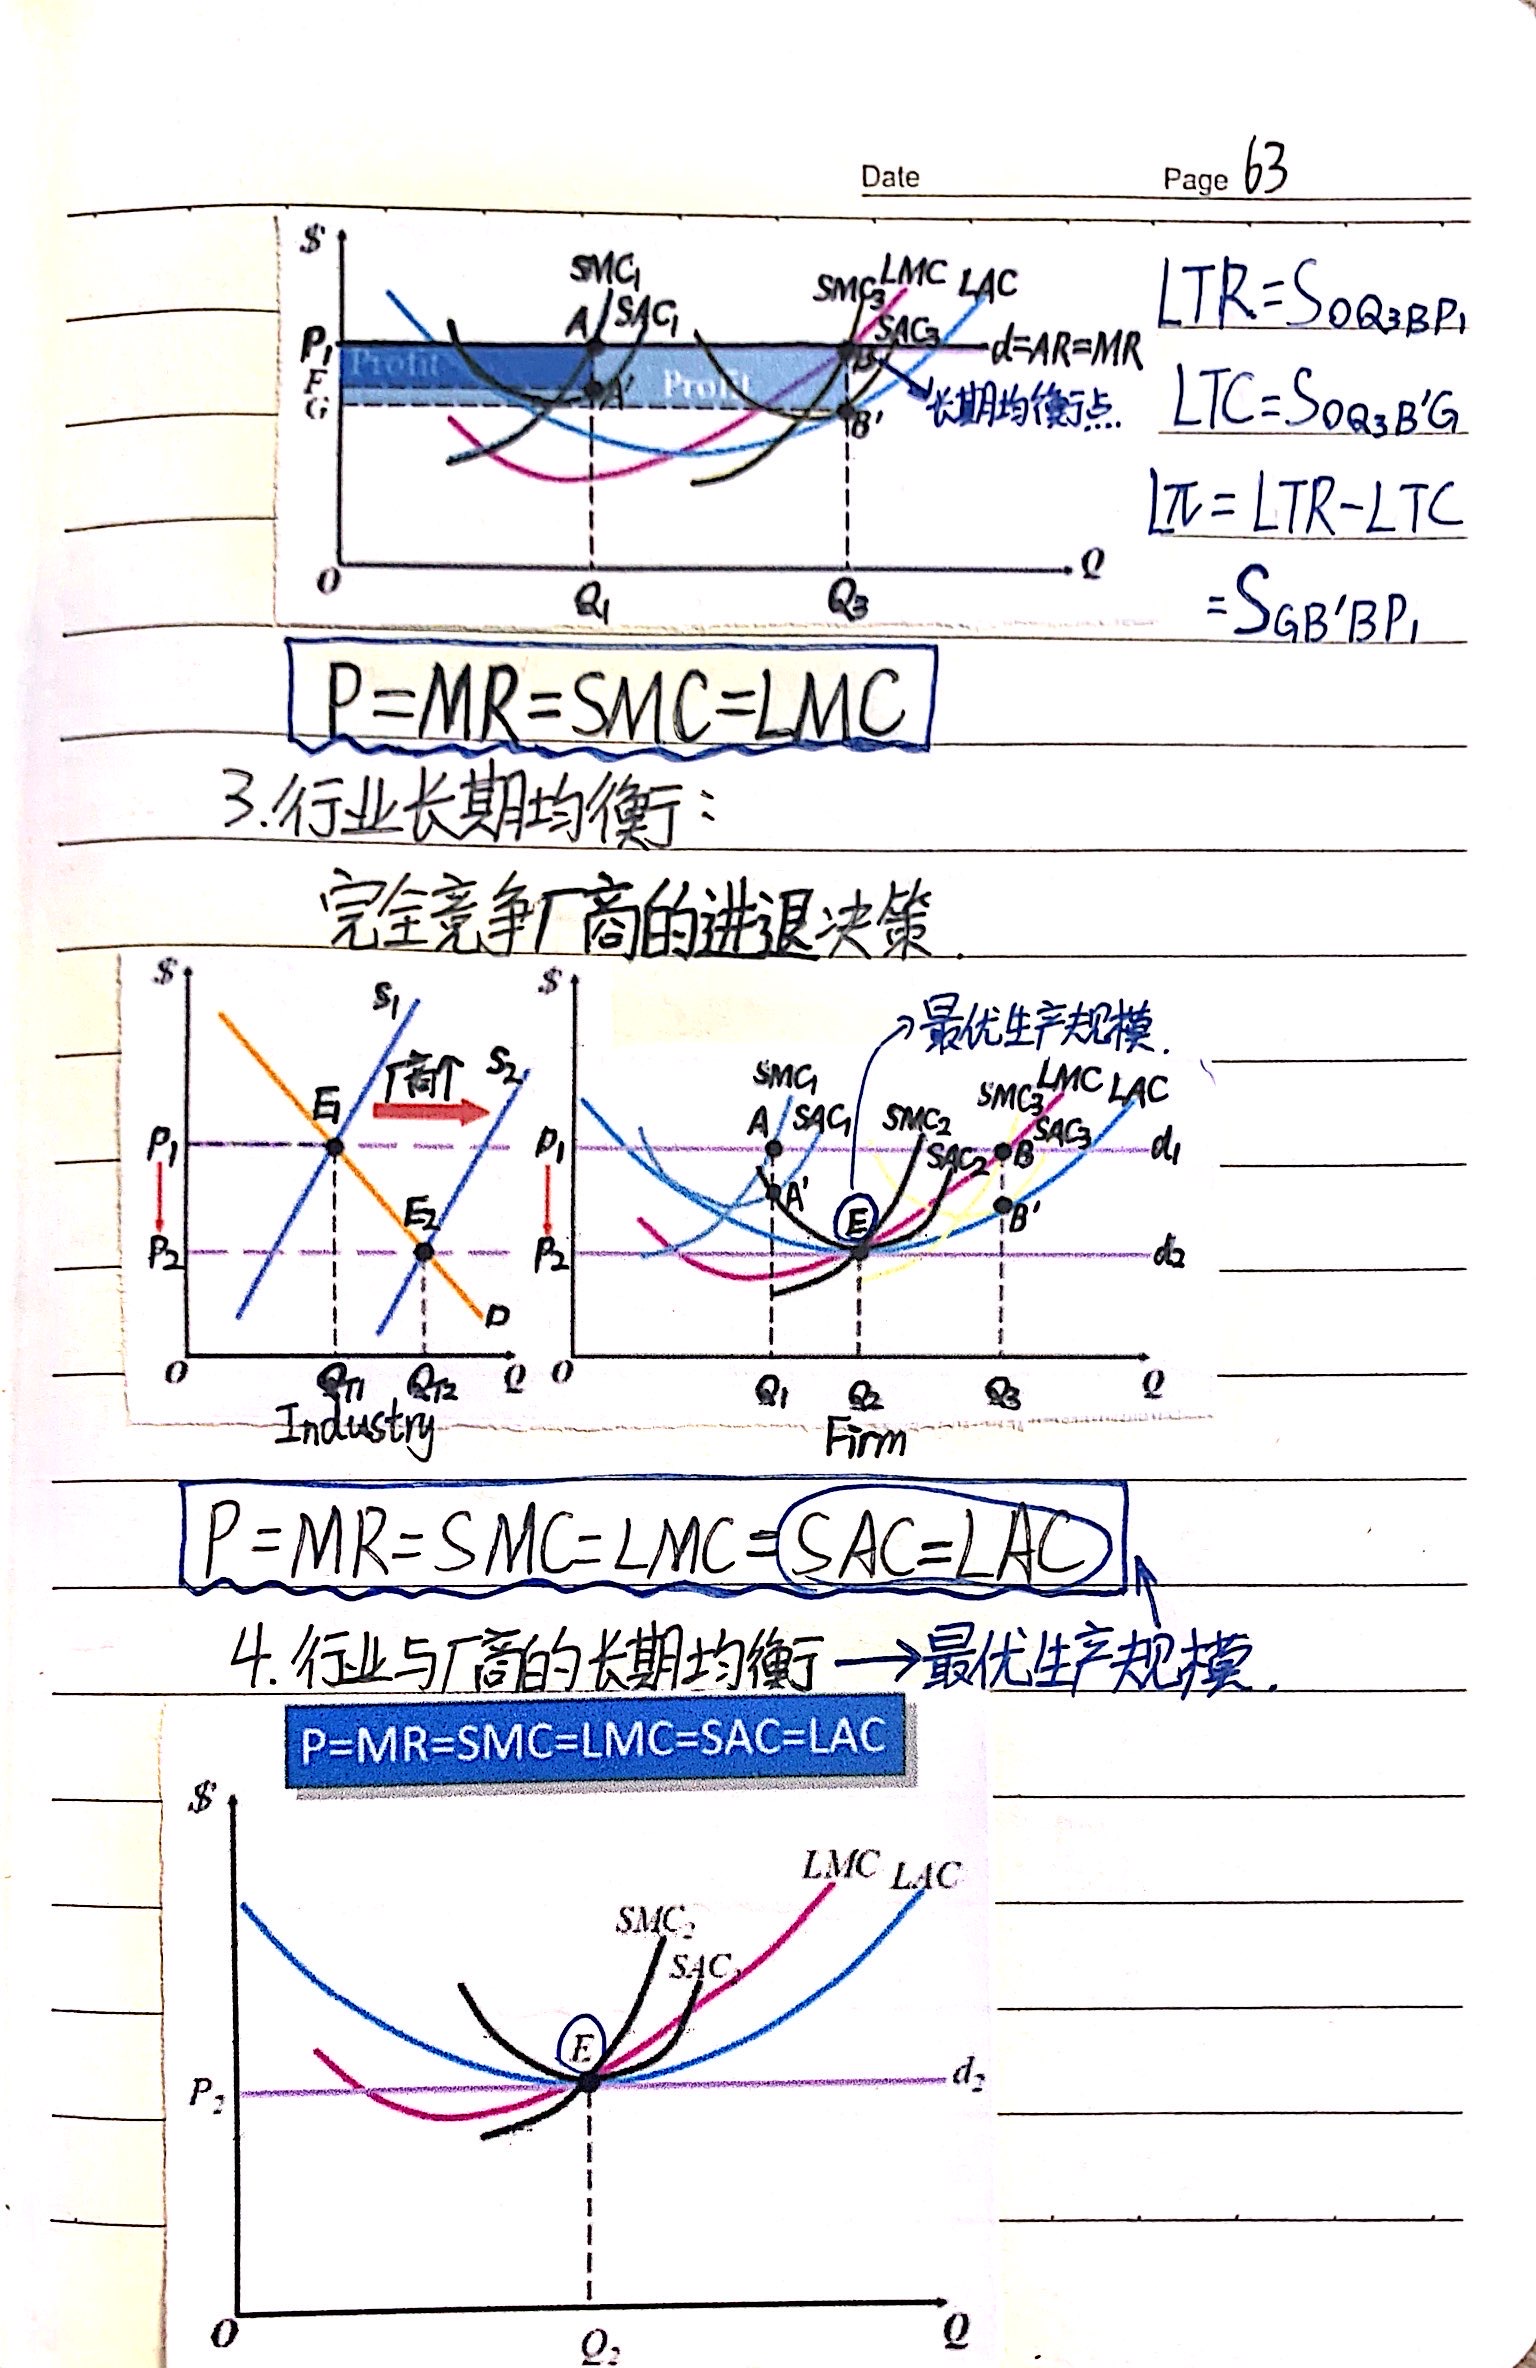 Date Page 63
$
SMC₁
SAC₁
SMC₃ LMC LAC
SAC₃
A
P₁
Profit
F
G
A'
Profit
B
d=AR=MR
长期均衡点.
B'
O Q₁ Q₃ Q
LTR=S₀Q₃BP₁
LTC=S₀Q₃B'G
Lπ=LTR-LTC
=SGB'BP₁
P=MR=SMC=LMC
3.行业长期均衡:
完全竞争厂商的进退决策.
$ S₁ 厂商个 S₂
E₁
P₁
E₂
P₂
D
O QT1 QT2 Q
Industry
$ 最优生产规模.
SMC₁ SMC₃ LMC LAC
A SAC₁ SMC₂ SAC₃
P₁ SAC₂ B d₁
A' E B'
P₂ d₂
O Q₁ Q₂ Q₃ Q
Firm
P=MR=SMC=LMC=SAC=LAC
4.行业与厂商的长期均衡→最优生产规模.
P=MR=SMC=LMC=SAC=LAC
$
LMC LAC
SMC₂
SAC₂
E
P₂ d₂
O Q₂ Q